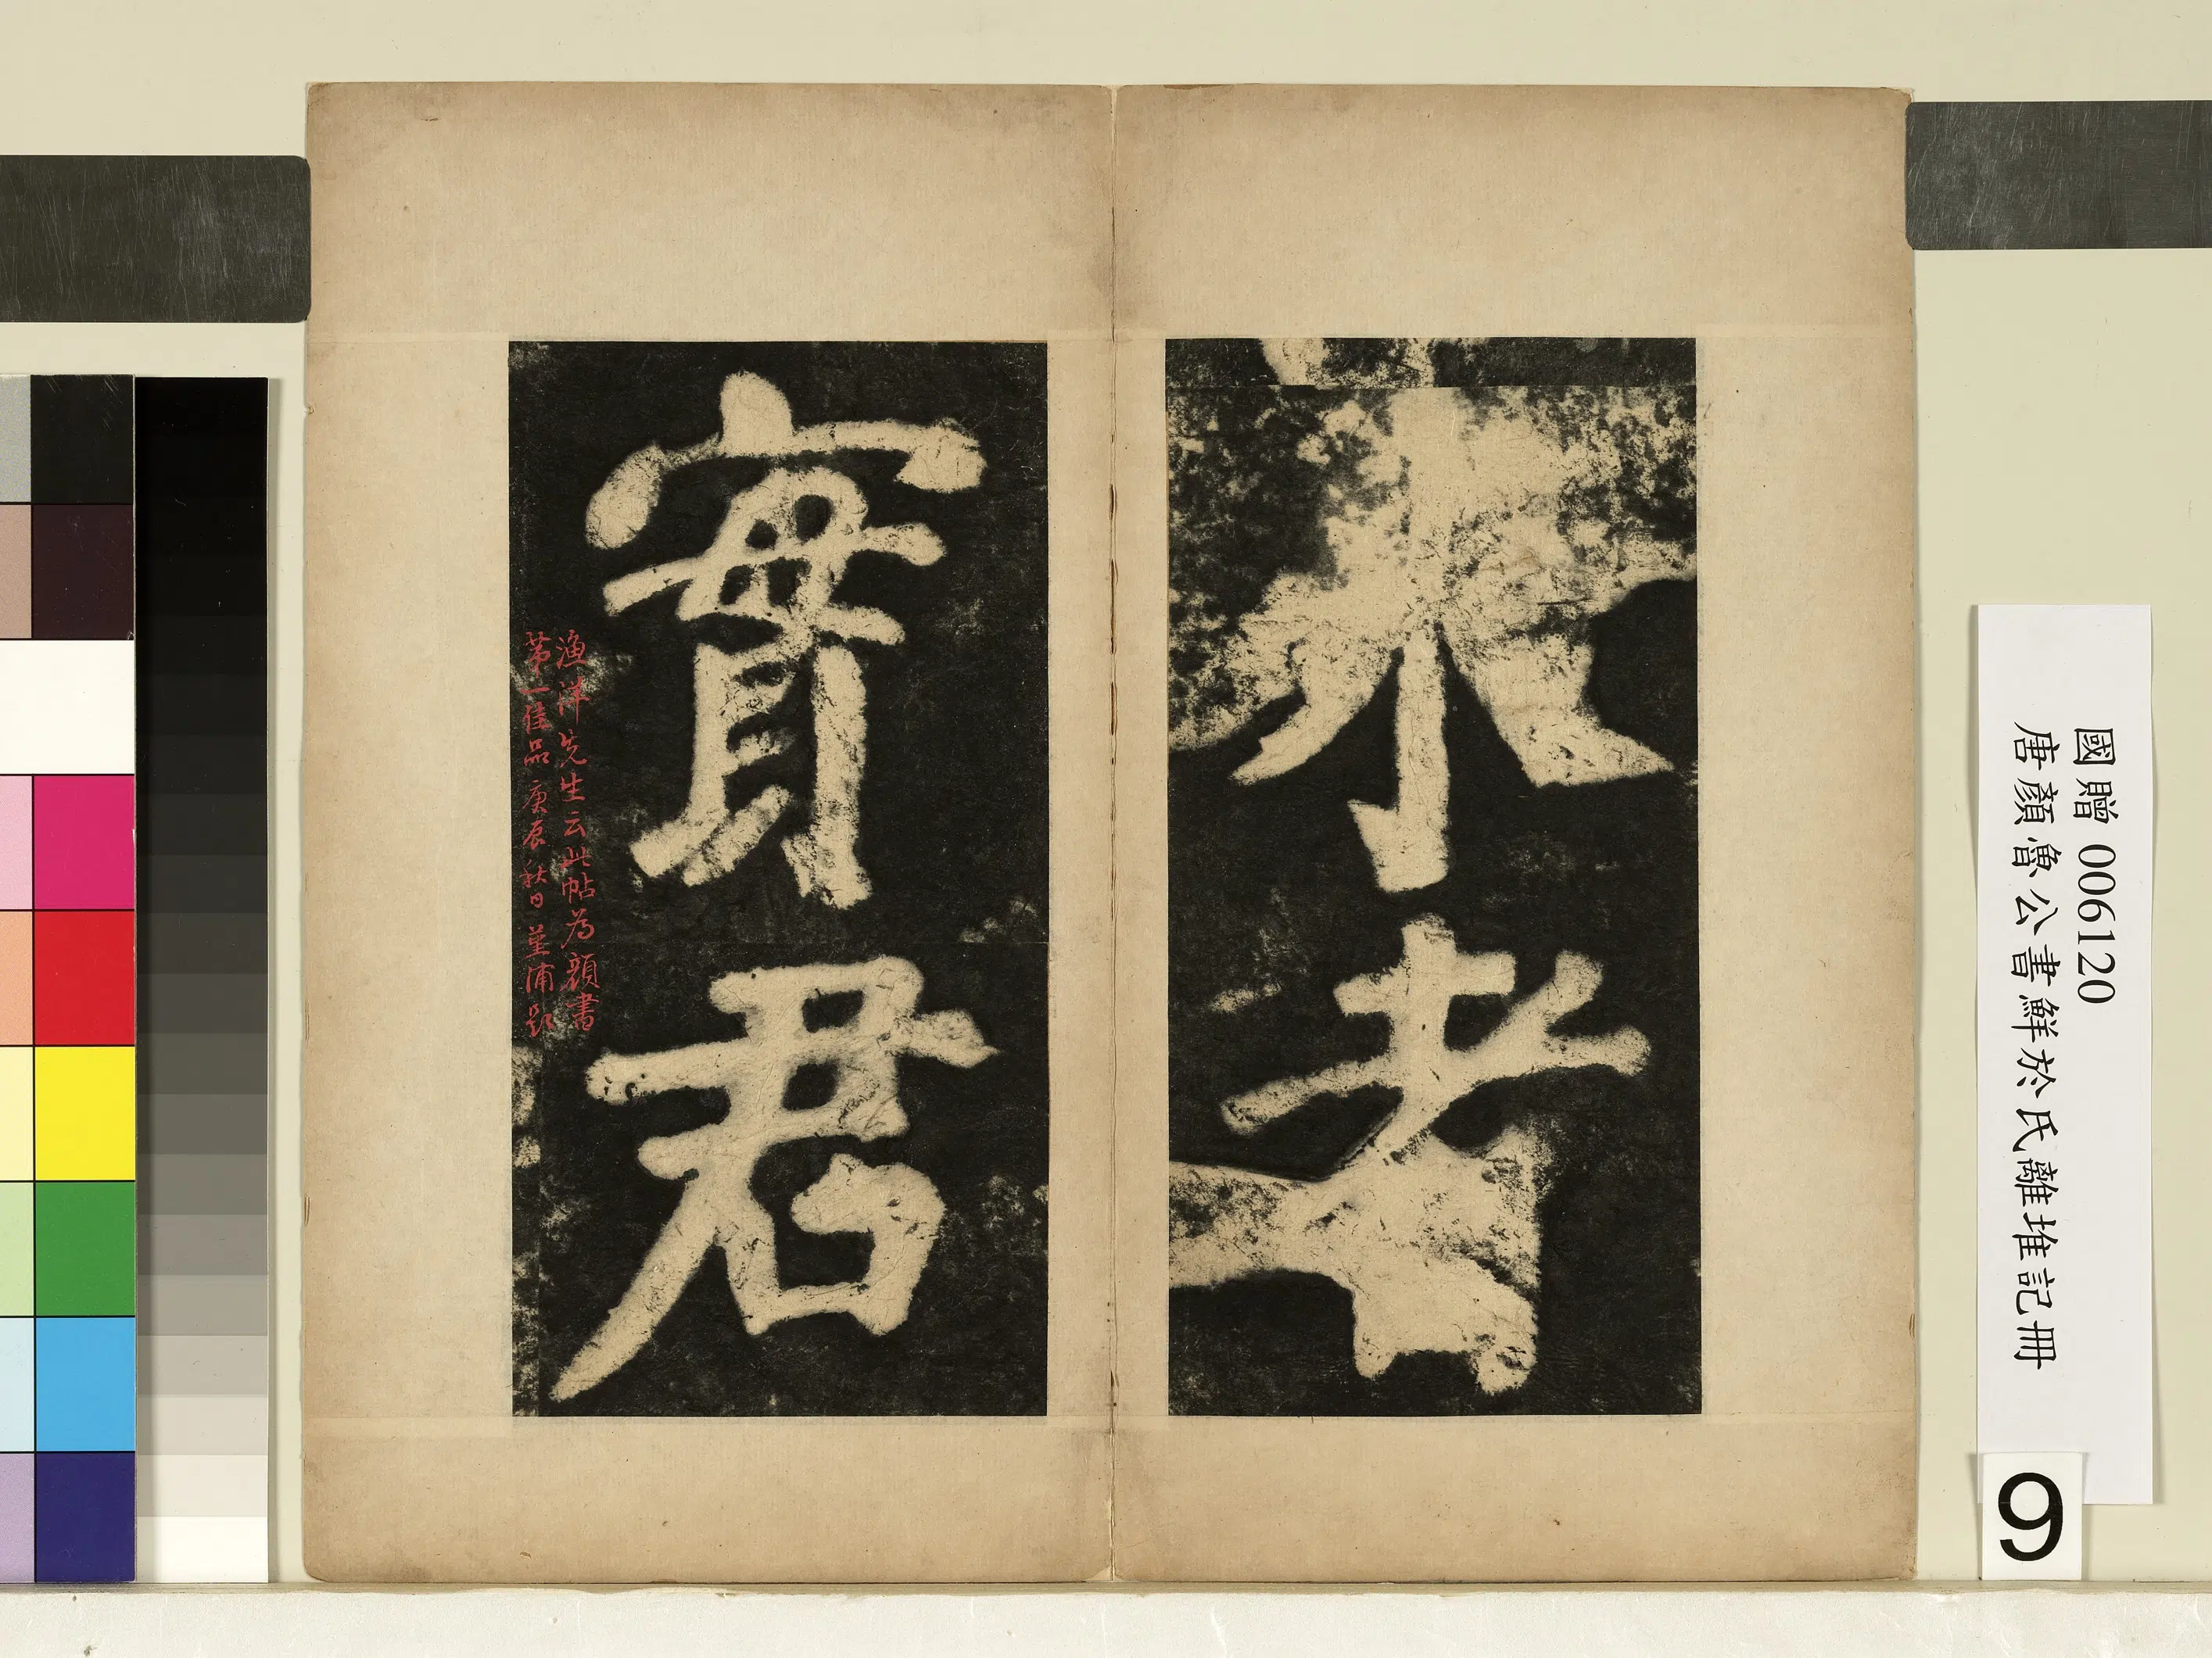 者
實君
漁洋先生云此帖為顏書
第一佳品庚辰秋日堇浦題
國贈 006120
唐顏魯公書鮮於氏離堆記冊
9